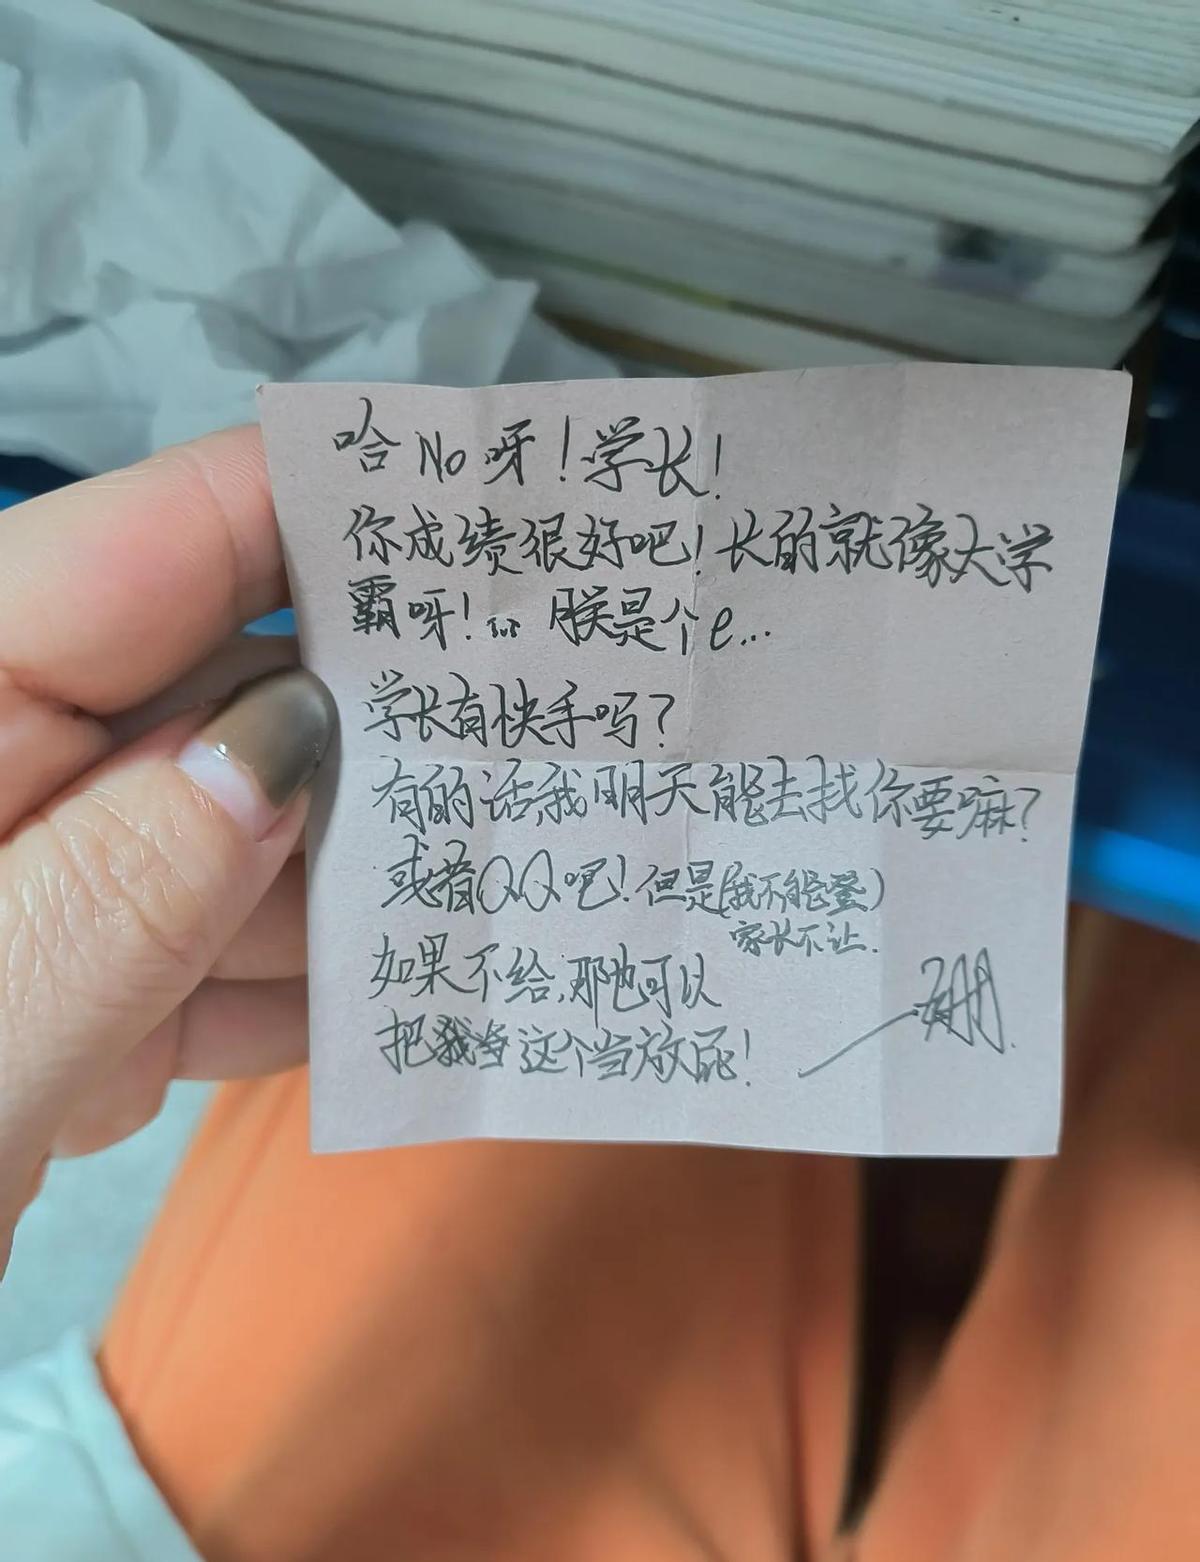 哈No呀！学长！
你成绩很好吧！长的就像大学
霸呀！… 朕是个e...
学长有快手吗？
有的话,我明天能去找你要嘛？
或者QQ吧！但是(我不能登)
家长不让.
如果不给,那也可以
把我当这个当放屁！
——珊.